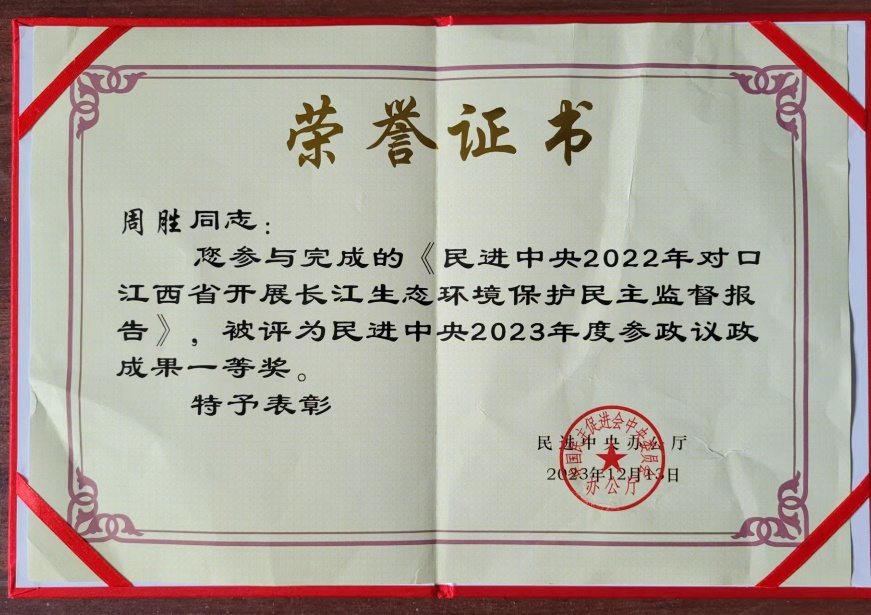 荣誉证书
周胜同志:
您参与完成的《民进中央2022年对口
江西省开展长江生态环境保护民主监督报
告》，被评为民进中央2023年度参政议政
成果一等奖。
特予表彰
民进中央办公厅
2023年12月13日
中国民主促进会中央委员会
办公厅